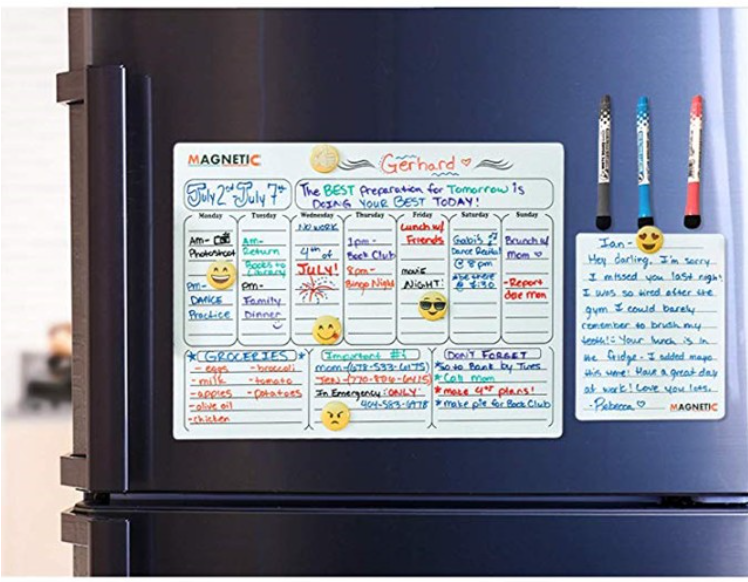 MAGNETIC
Gerhard
July 2nd July 7th
The BEST preparation for Tomorrow is
DOING YOUR BEST TODAY!
Monday Tuesday Wednesday Thursday Friday Saturday Sunday
AM-
Photoshoot
PM-
DANCE
Practice
AM-
Return
Books to
Library
PM-
Family
Dinner
NO WORK
4th of
JULY!
1pm-
Book Club
8pm-
Bingo Night
Lunch w/
Friends
movie
NIGHT!
Gabi's
Dance Recital
@ 8pm
@ 7:30
Brunch w/
mom
-Report
due mon
*GROCERIES*
-eggs
-milk
-apples
-olive oil
-chicken
-broccoli
-tomato
-potatoes
Important #s
mom-(678-533-6175)
In Emergency "ONLY"
404-583-6978
DON'T FORGET
*Go to Bank by Tues.
*Call mom
*make 4th plans!
*make pie for Book Club
Ian-
Hey darling. I'm sorry
I missed you last night
I was so tired after the
gym I could barely
remember to brush my
teeth! Your lunch is in
the fridge. I added mayo
this time! Have a great day
at work! Love you lots.
-Rebecca
MAGNETIC